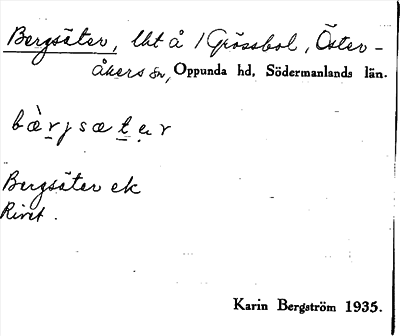 Bergsäter, lht å 1 Grössbol, Öster-
åkers sn, Oppunda hd, Södermanlands län.
bæ̀rjsæt̲ər
Bergsäter ek
Rivet.
Karin Bergström 1935.